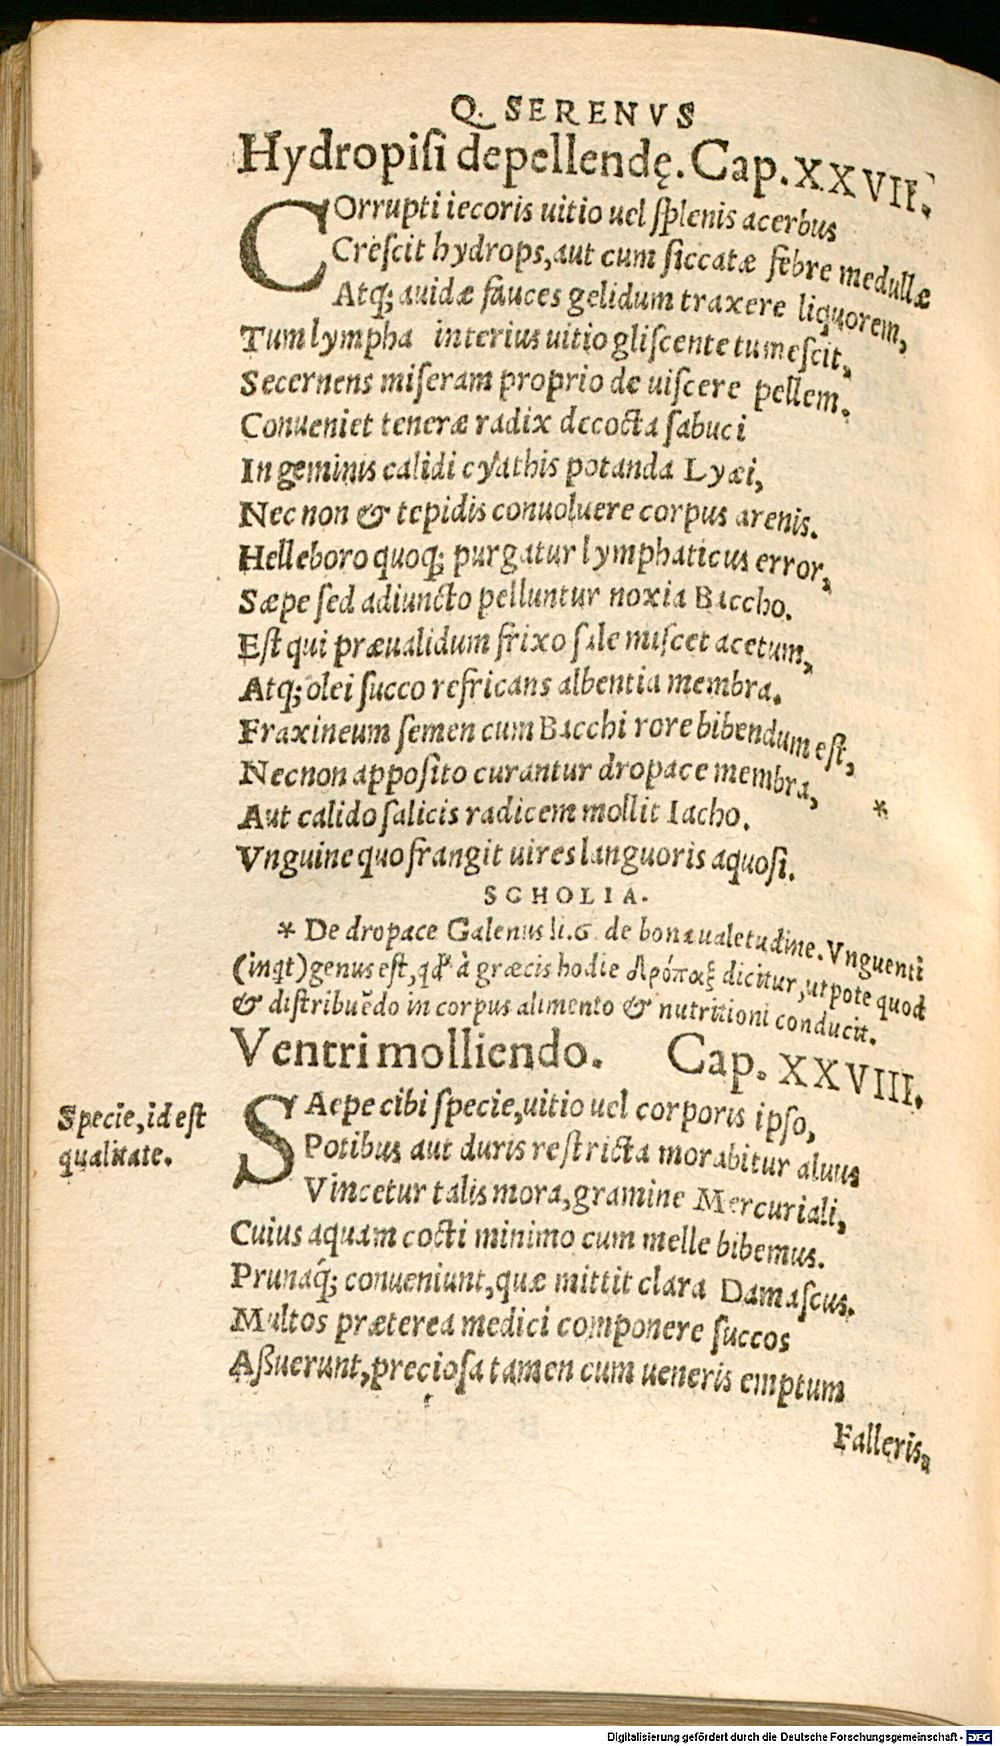 Q. SERENVS
Hydropiſi depellendę. Cap. XXVII.
COrrupti iecoris uitio uel ſplenis acerbus
Creſcit hydrops, aut cum ſiccatæ febre medullæ
Atq; auidæ fauces gelidum traxere liquorem,
Tum lympha interius uitio gliſcente tumeſcit,
Secernens miſeram proprio de uiſcere pellem.
Conueniet teneræ radix decocta ſabuci
In geminis calidi cyathis potanda Lyæi,
Nec non & tepidis conuoluere corpus arenis.
Helleboro quoq; purgatur lymphaticus error,
Sæpe ſed adiuncto pelluntur noxia Baccho.
Eſt qui præualidum frixo ſale miſcet acetum,
Atq; olei ſucco refricans albentia membra.
Fraxineum ſemen cum Bacchi rore bibendum eſt,
Necnon appoſito curantur dropace membra, *
Aut calido ſalicis radicem mollit Iacho.
Vnguine quo frangit uires languoris aquoſi.
SCHOLIA.
* De dropace Galenus li.6. de bona ualetudine. Vnguenti
(inqt) genus eſt, qd à græcis hodie δρόπαξ dicitur, utpote quod
& diſtribuēdo in corpus alimento & nutritioni conducit.
Ventri molliendo. Cap. XXVIII.
SAepe cibi ſpecie, uitio uel corporis ipſo,
Specie, id eſt
qualitate.
Potibus aut duris reſtricta morabitur aluus
Vincetur talis mora, gramine Mercuriali,
Cuius aquam cocti minimo cum melle bibemus.
Prunaq́; conueniunt, quæ mittit clara Damaſcus.
Multos præterea medici componere ſuccos
Aßuerunt, precioſa tamen cum ueneris emptum
Falleris,
Digitalisierung gefördert durch die Deutsche Forschungsgemeinschaft - DFG